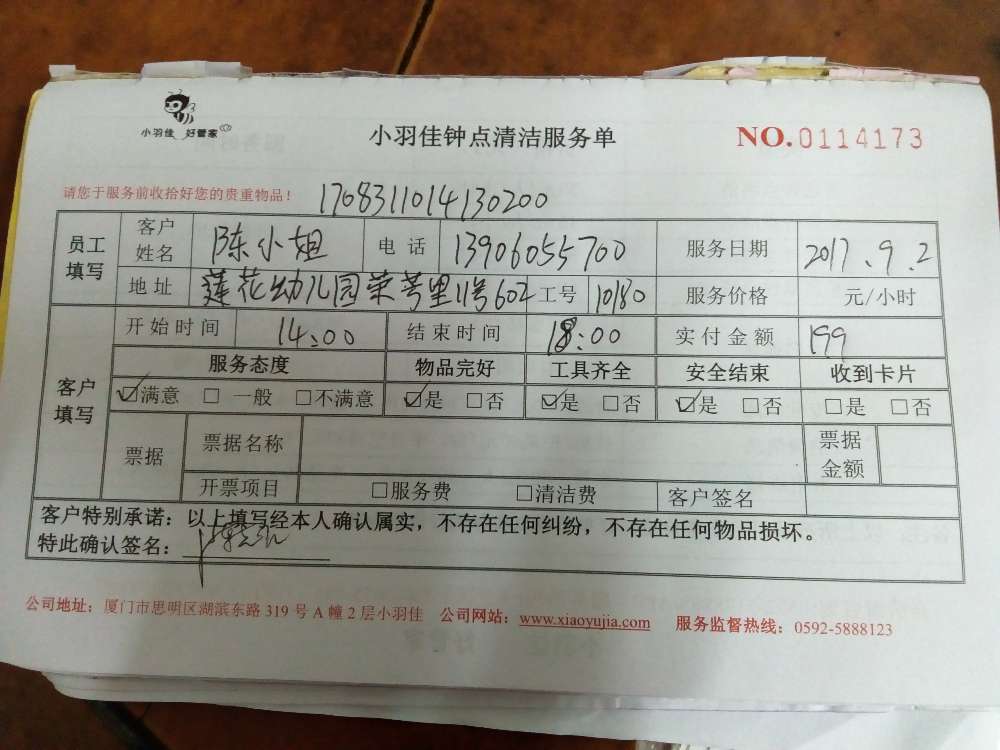 小羽佳 好管家
小羽佳钟点清洁服务单
NO.0114173
请您于服务前收拾好您的贵重物品！
1708311014130200
员工填写 客户姓名 陈小姐 电话 13906055700 服务日期 2017.9.2
地址 莲花幼儿园荣芩里11号602 工号 10180 服务价格 元/小时
客户填写 开始时间 14:00 结束时间 18:00 实付金额 199
服务态度 物品完好 工具齐全 安全结束 收到卡片
☑满意 □一般 □不满意 ☑是 □否 ☑是 □否 ☑是 □否 □是 □否
票据 票据名称 票据金额
开票项目 □服务费 □清洁费 客户签名
客户特别承诺：以上填写经本人确认属实，不存在任何纠纷，不存在任何物品损坏。
特此确认签名：
公司地址：厦门市思明区湖滨东路 319 号 A 幢 2 层小羽佳 公司网站：www.xiaoyujia.com 服务监督热线：0592-5888123